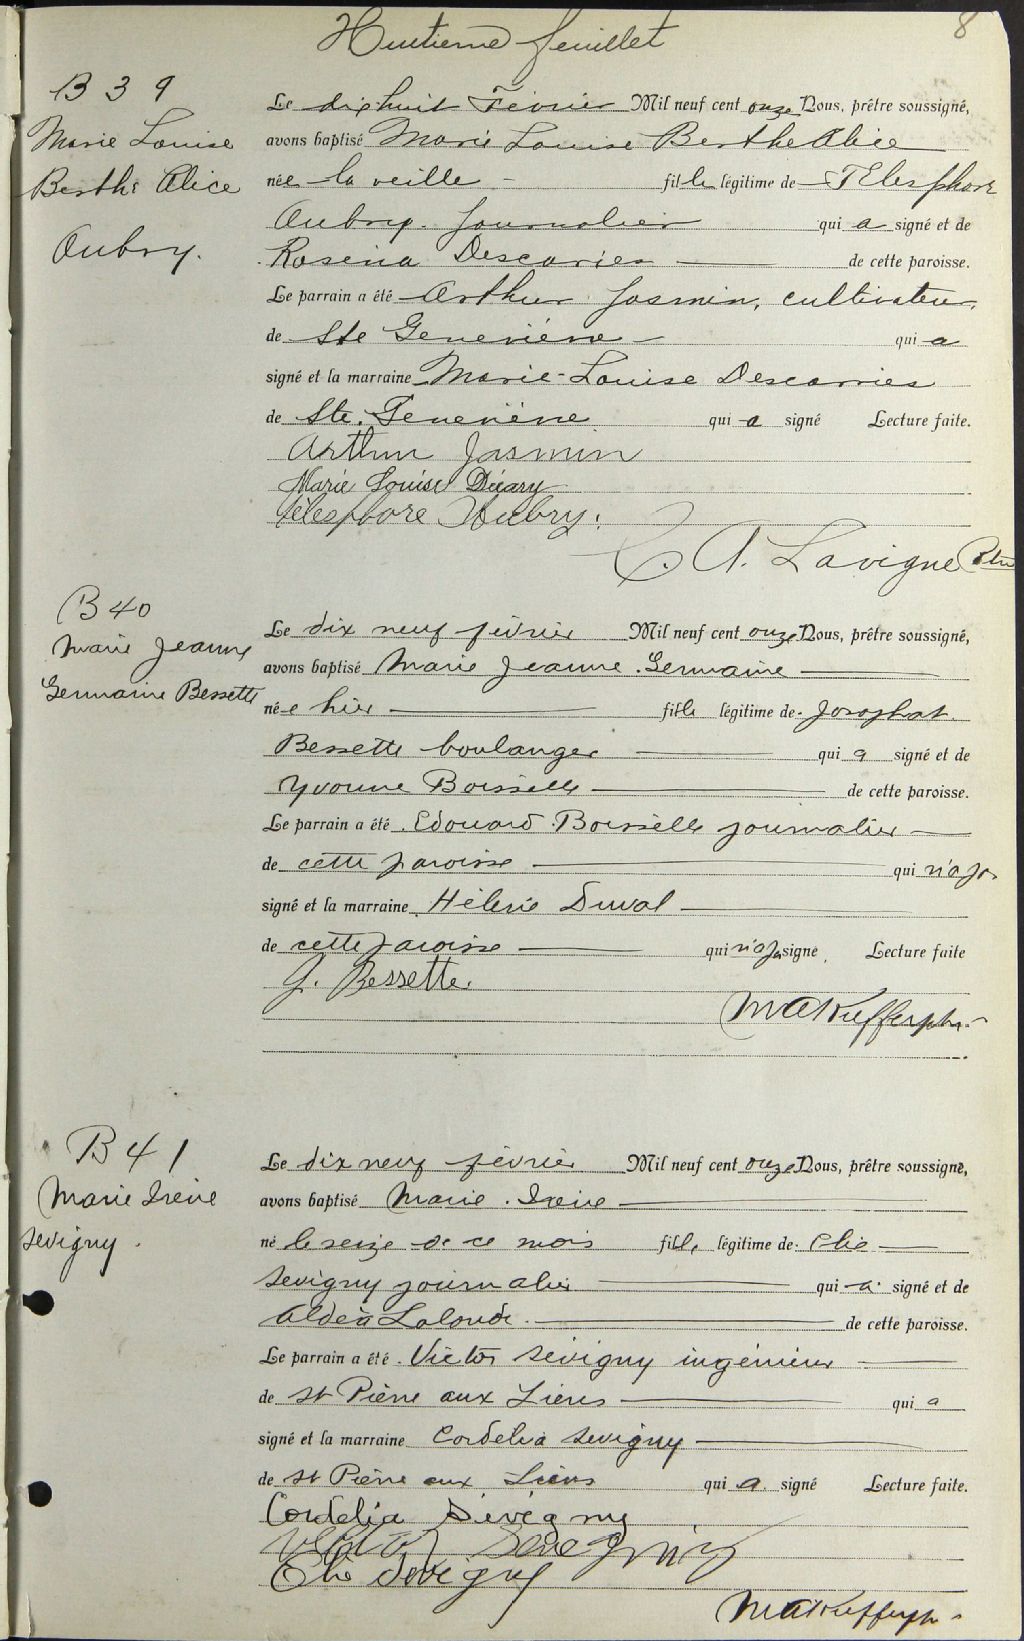 Huitième feuillet
8
B 39
Marie Louise
Berthe Alice
Aubry.
Le dix huit Février Mil neuf cent onze Nous, prêtre soussigné,
avons baptisé Marie Louise Berthe Alice
née la veille - fille légitime de Télesphore
Aubry. Journalier qui a signé et de
Roseria Descaries de cette paroisse.
Le parrain a été Arthur Jasmin, cultivateur,
de Ste Geneviève qui a
signé et la marraine Marie-Louise Descarries
de Ste. Geneviève qui a signé Lecture faite.
Arthur Jasmin
Marie Louise Décary
Télesphore Aubry.
C. A. Lavigne Ptre
B 40
Marie Jeanne
Germaine Bessette
Le dix neuf février Mil neuf cent onze Nous, prêtre soussigné,
avons baptisé Marie Jeanne Germaine
née hier fille légitime de Josaphat
Bessette boulanger qui a signé et de
Yvonne Boisselle de cette paroisse.
Le parrain a été Edouard Boisselle journalier
de cette paroisse qui n'a pas
signé et la marraine Hélène Duval
de cette paroisse qui n'a pas signé Lecture faite
J. Bessette.
B 41
Marie Irène
Sevigny.
Le dix neuf février Mil neuf cent onze Nous, prêtre soussigné,
avons baptisé Marie. Irène
né le seize de ce mois fille légitime de Elie
Sevigny journalier qui a signé et de
Aldéa Lalonde. de cette paroisse.
Le parrain a été Victor Sévigny ingénieur
de St Pierre aux Liens qui a
signé et la marraine Cordelia Sevigny
de St Pierre aux Liens qui a signé Lecture faite.
Cordelia Sévégny
Victor Sevegny
Elie Sevigny